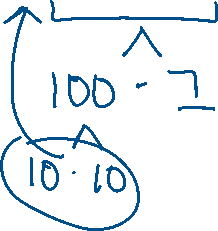 100 · 7
10 · 10